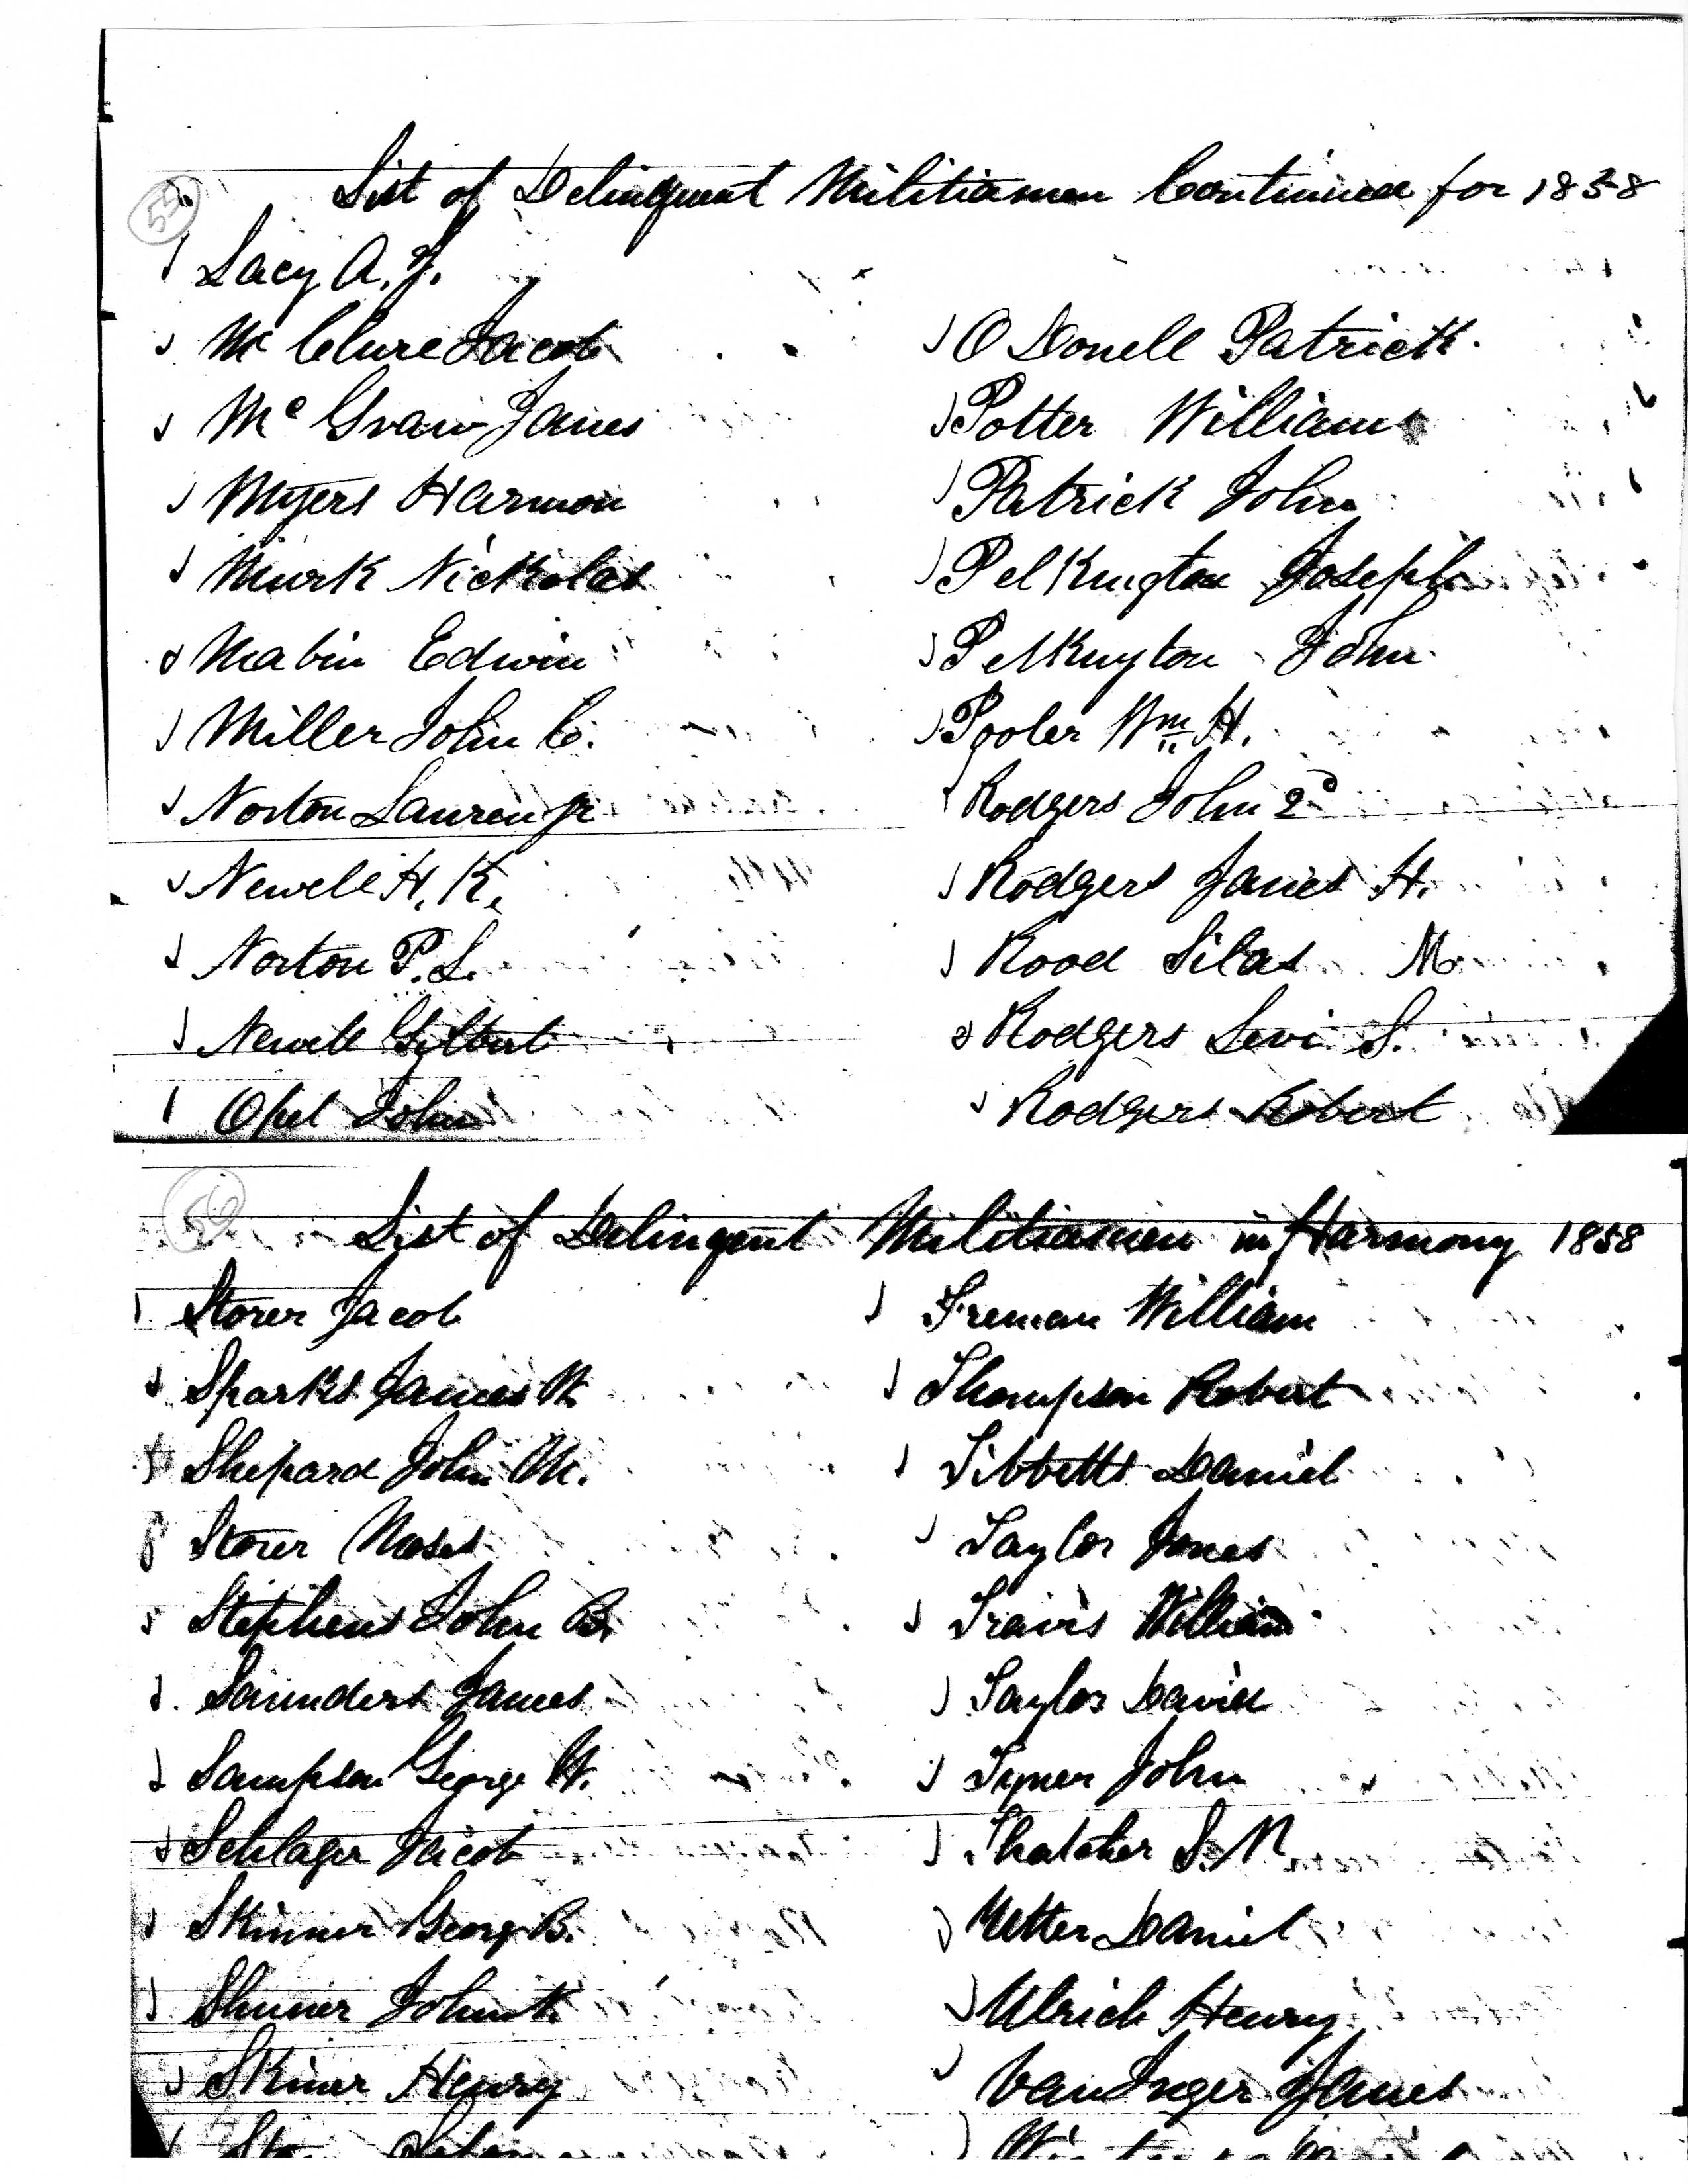 55
List of Delinquent Militiamen Continued for 1858
Lacy A. J.
Mc Clure Jacob
Mc Graw James
Myers Harmon
Murk Nickolas
Mabin Edwin
Miller John C.
Norton Lauren Jr
Newell H. K.
Norton P. L.
Newell Gylbert
Opel John
O Donell Patrick.
Potter William
Patrick John
Pelkington Joseph
Pelkington John
Pooler Wm H.
Rodgers John 2d
Rodgers James H.
Rood Silas M
Rodgers Levi S.
Rodgers Robert
56
List of Delinqent Militiamen in Harmony 1858
Storer Jacob
Sparks James
Shepard John M.
Storer Moses
Stephens John B.
Saunders James
Sampson George W.
Schlager Jacob
Skinner Georg B.
John
Skiner Henry
Treman William
Thompson Robert
Tibbetts Daniel
Taylor Jones
Travis William
Taylor David
Tymer John
Thatcher S. M
Utter Daniel
Ulrich Henry
Van Inger James